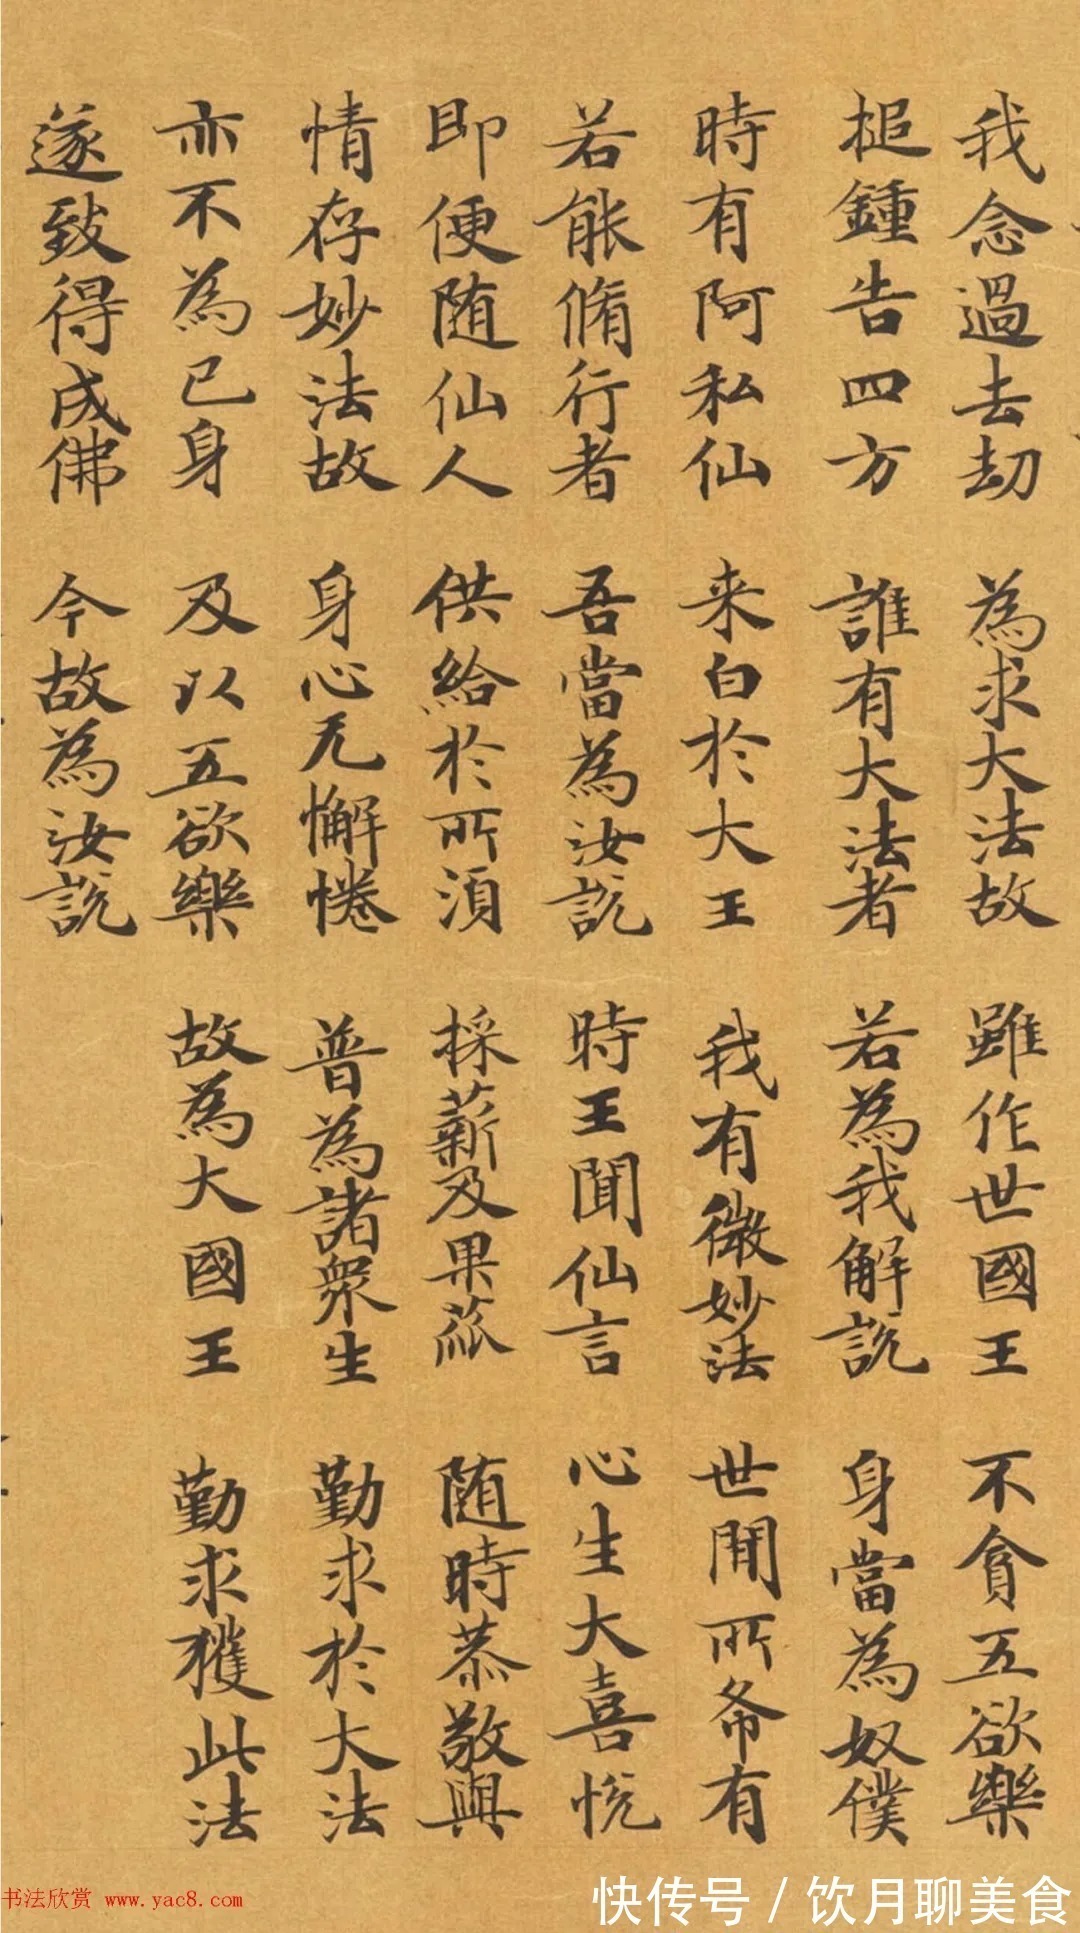 我念過去劫 為求大法故 雖作世國王 不貪五欲樂
槌鍾告四方 誰有大法者 若為我解說 身當為奴僕
時有阿私仙 来白於大王 我有微妙法 世間所希有
若能脩行者 吾當為汝說 時王聞仙言 心生大喜悅
即便随仙人 供給於所須 採薪及果蓏 随時恭敬與
情存妙法故 身心无懈惓 普為諸衆生 勤求於大法
亦不為己身 及以五欲樂 故為大國王 勤求獲此法
遂致得成佛 今故為汝說
书法欣赏 www.yac8.com
快传号/饮月聊美食